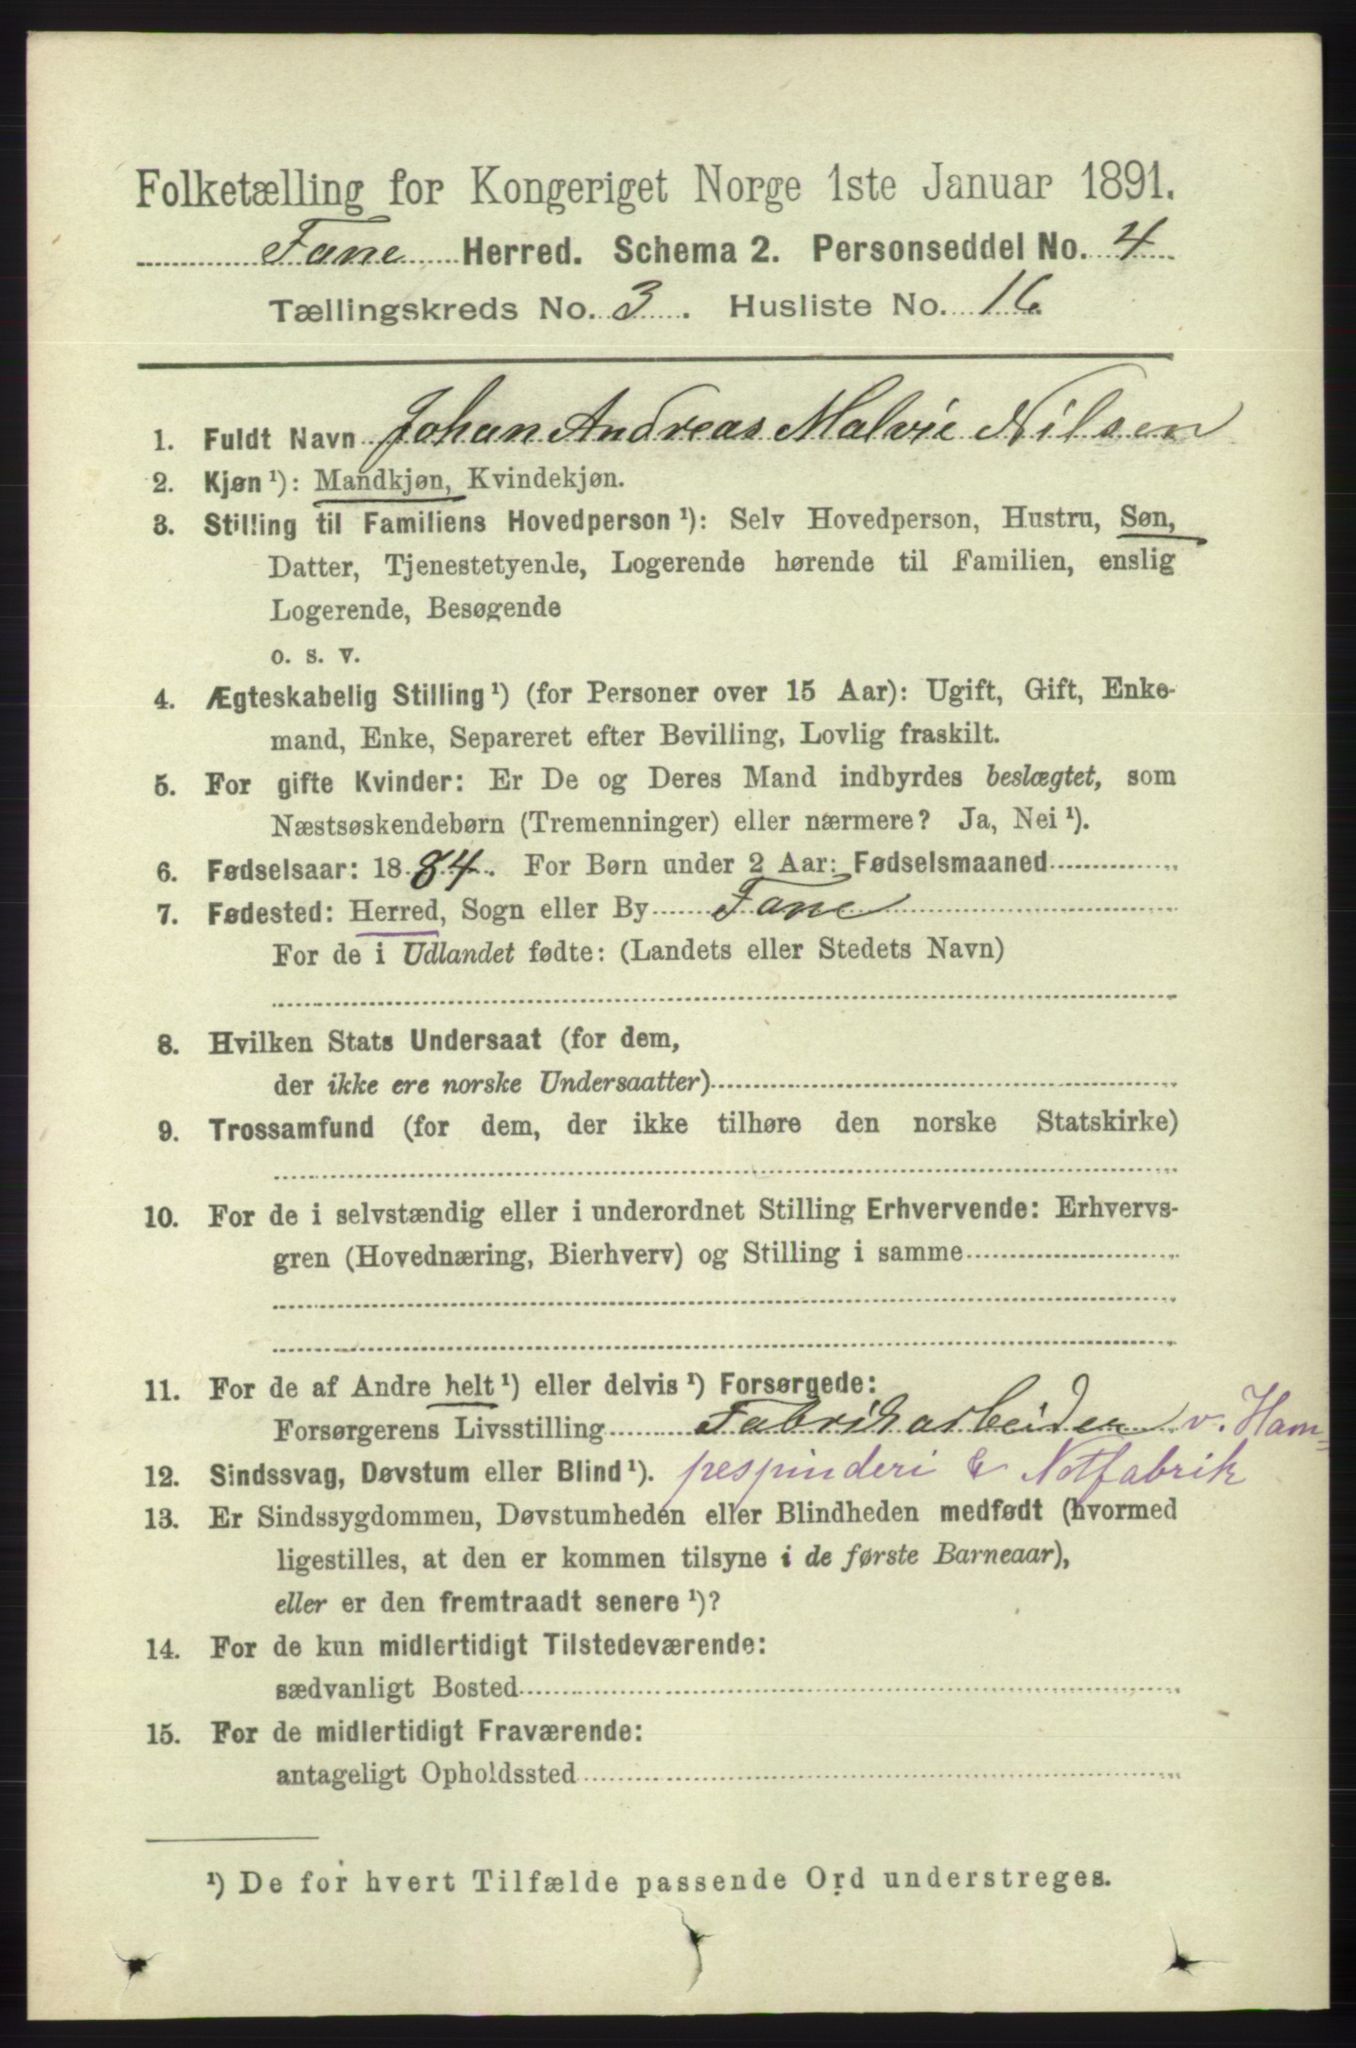 Folketælling for Kongeriget Norge 1ste Januar 1891.
Fane Herred. Schema 2. Personseddel No. 4
Tællingskreds No. 3. Husliste No. 16.
1. Fuldt Navn Johan Andreas Malvie Nilsen
2. Kjøn ¹): Mandkjøn, Kvindekjøn.
3. Stilling til Familiens Hovedperson ¹): Selv Hovedperson, Hustru, Søn,
Datter, Tjenestetyende, Logerende hørende til Familien, enslig
Logerende, Besøgende
o. s. v.
4. Ægteskabelig Stilling ¹) (for Personer over 15 Aar): Ugift, Gift, Enke-
mand, Enke, Separeret efter Bevilling, Lovlig fraskilt.
5. For gifte Kvinder: Er De og Deres Mand indbyrdes beslægtet, som
Næstsøskendebørn (Tremenninger) eller nærmere? Ja, Nei ¹).
6. Fødselsaar: 1884. For Børn under 2 Aar: Fødselsmaaned
7. Fødested: Herred, Sogn eller By Fane
For de i Udlandet fødte: (Landets eller Stedets Navn)
8. Hvilken Stats Undersaat (for dem,
der ikke ere norske Undersaatter)
9. Trossamfund (for dem, der ikke tilhøre den norske Statskirke)
10. For de i selvstændig eller i underordnet Stilling Erhvervende: Erhvervs-
gren (Hovednæring, Bierhverv) og Stilling i samme
11. For de af Andre helt ¹) eller delvis ¹) Forsørgede:
Forsørgerens Livsstilling Fabrikarbeider v. Ham=
12. Sindssvag, Døvstum eller Blind ¹). pespinderi & Notfabrik
13. Er Sindssygdommen, Døvstumheden eller Blindheden medfødt (hvormed
ligestilles, at den er kommen tilsyne i de første Barneaar),
eller er den fremtraadt senere ¹)?
14. For de kun midlertidigt Tilstedeværende:
sædvanligt Bosted
15. For de midlertidigt Fraværende:
antageligt Opholdssted
¹) De for hvert Tilfælde passende Ord understreges.